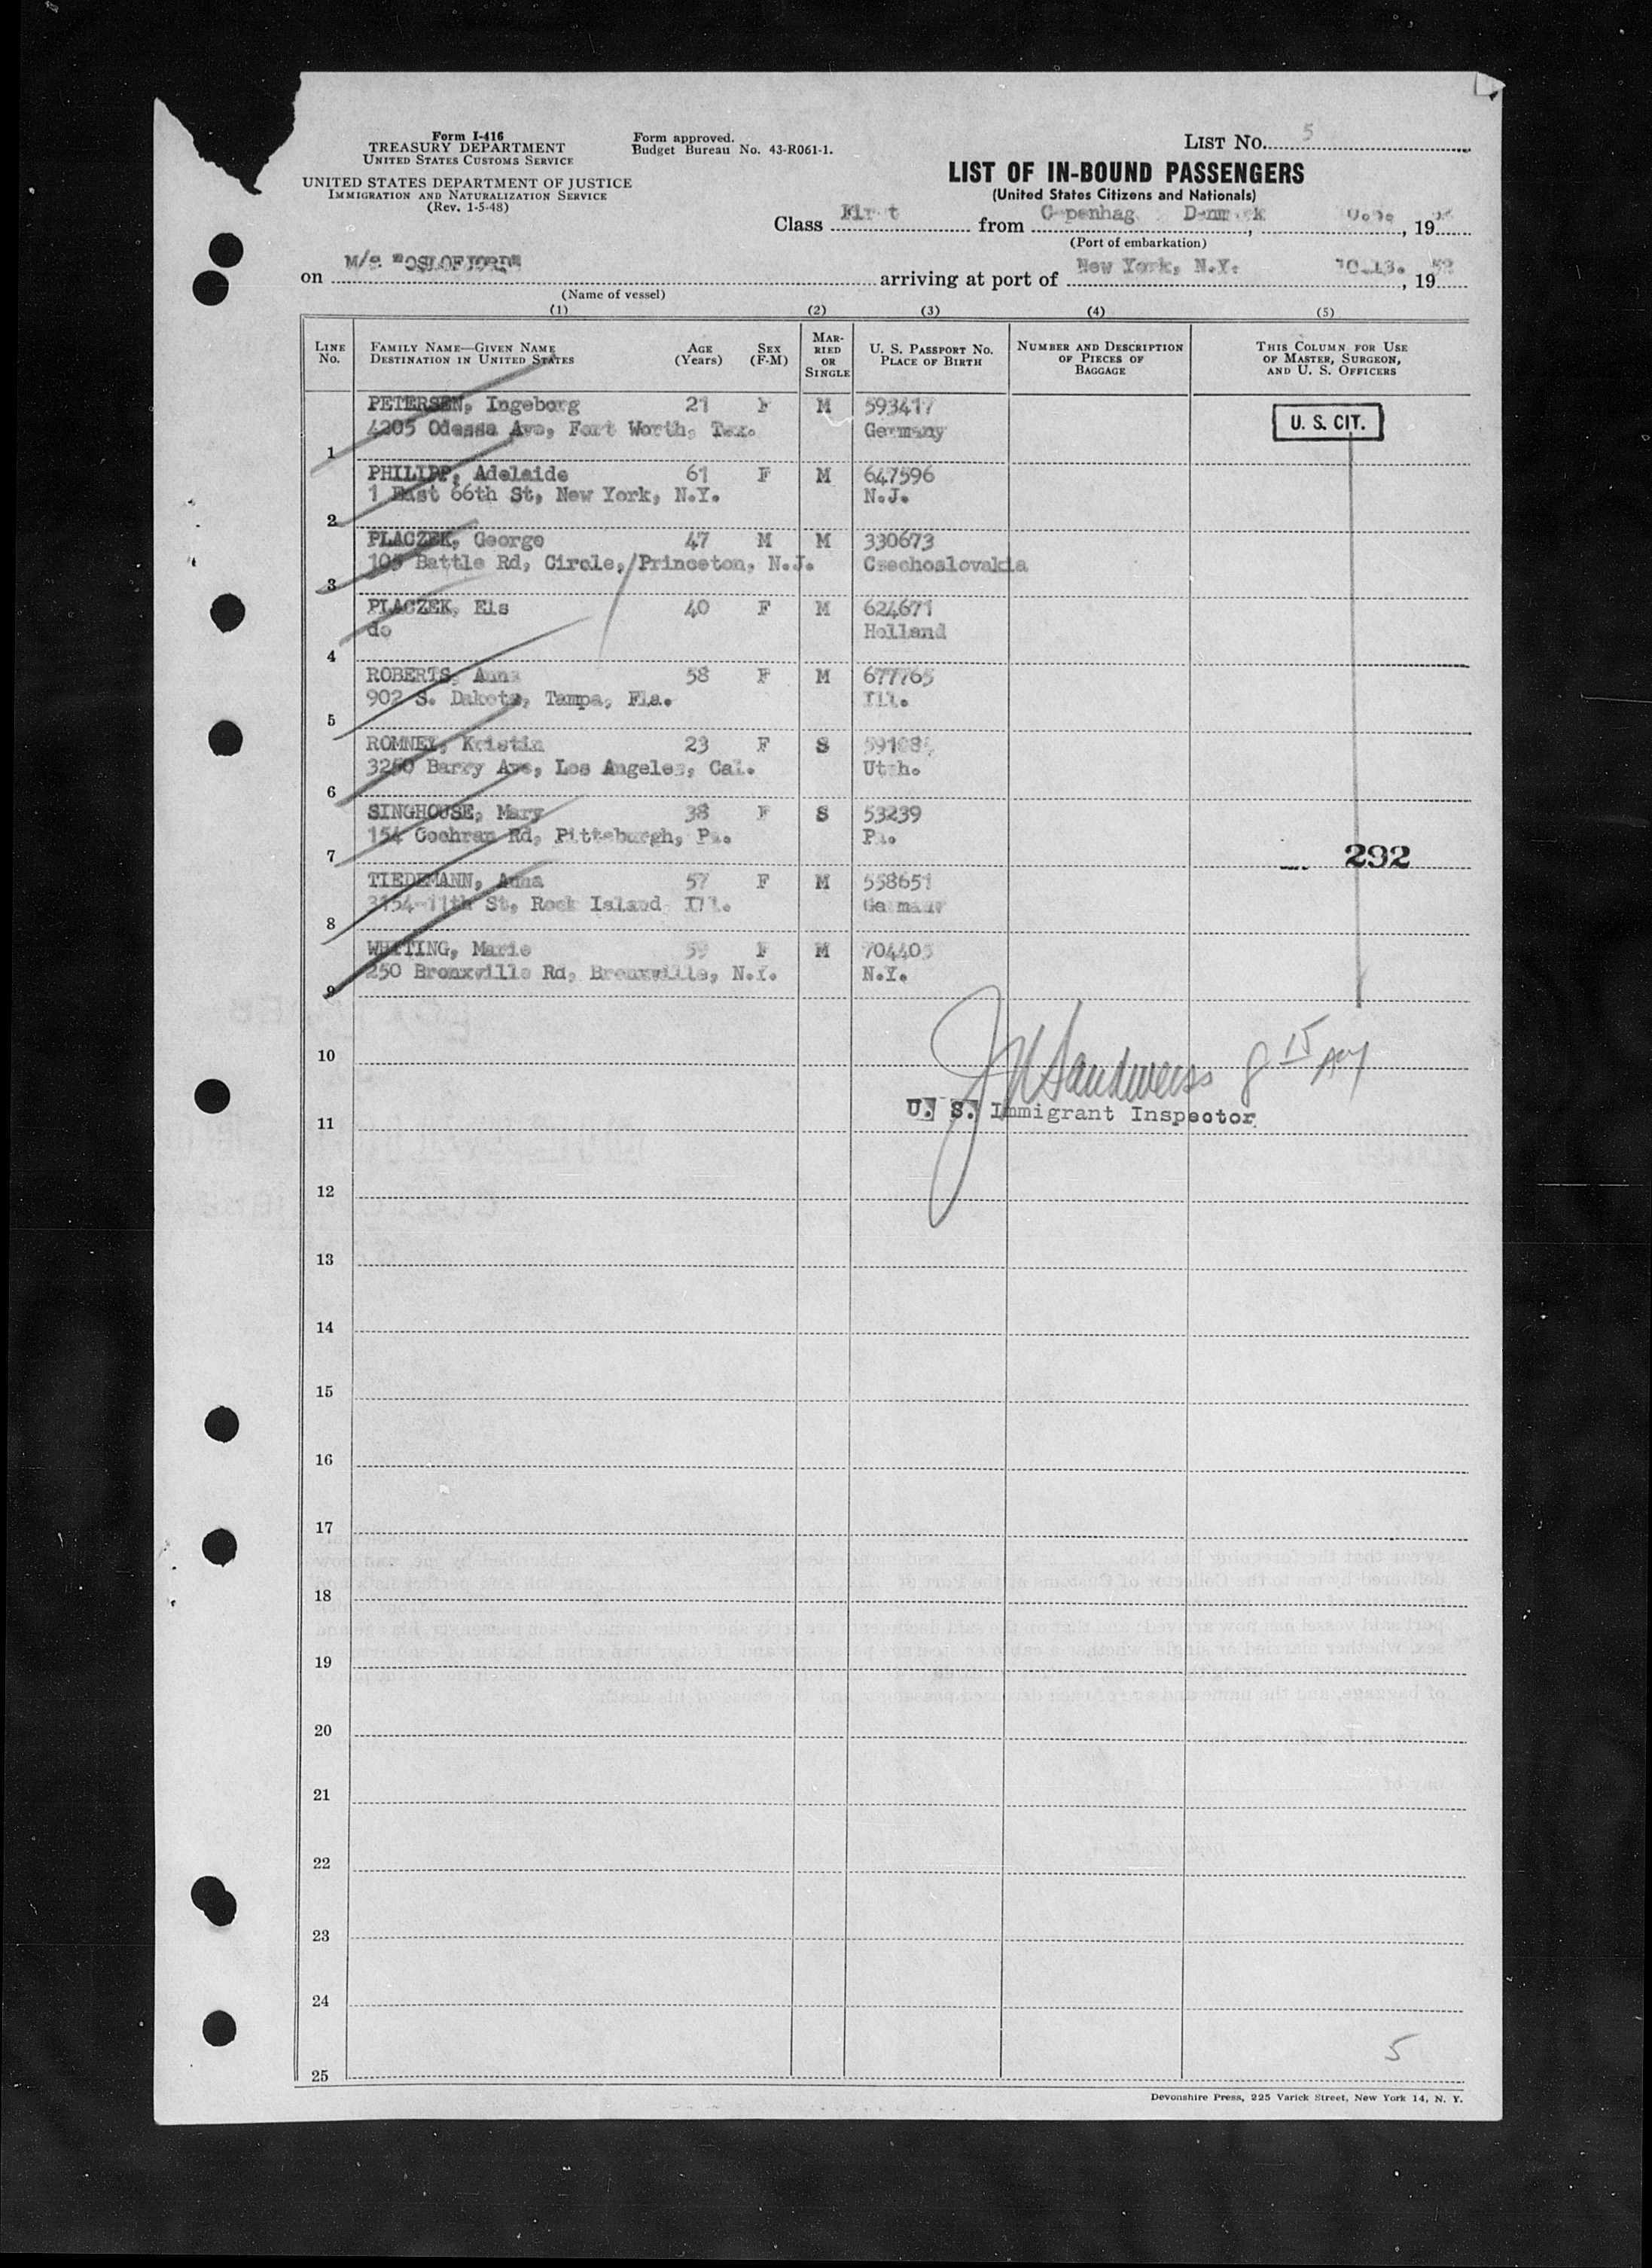 Form I-416
TREASURY DEPARTMENT
UNITED STATES CUSTOMS SERVICE
UNITED STATES DEPARTMENT OF JUSTICE
IMMIGRATION AND NATURALIZATION SERVICE
(Rev. 1-5-48)
Form approved.
Budget Bureau No. 43-R061-1.
LIST NO. 5
LIST OF IN-BOUND PASSENGERS
(United States Citizens and Nationals)
Class First from Copenhag Denmark, 19
(Port of embarkation)
on M/S "OSLOFJORD" arriving at port of New York, N.Y. 10.13. , 1952
(Name of vessel)
(1) (2) (3) (4) (5)
LINE NO. FAMILY NAME—GIVEN NAME DESTINATION IN UNITED STATES AGE (Years) SEX (F-M) MARRIED OR SINGLE U. S. PASSPORT NO. PLACE OF BIRTH NUMBER AND DESCRIPTION OF PIECES OF BAGGAGE THIS COLUMN FOR USE OF MASTER, SURGEON, AND U. S. OFFICERS
PETERSEN, Ingeborg 21 F M 593417 U. S. CIT.
4205 Odessa Ave, Fort Worth, Tex. Germany
1
PHILIPP, Adelaide 61 F M 647596
1 East 66th St, New York, N.Y. N.J.
2
PLACZEK, George 47 M M 330673
105 Battle Rd, Circle, Princeton, N.J. Czechoslovakia
3
PLACZEK, Els 40 F M 624671
do Holland
4
ROBERTS, Anna 58 F M 677765
902 S. Dakota, Tampa, Fla. Ill.
5
ROMNEY, Kristin 23 F S
3250 Barry Ave, Los Angeles, Cal. Utah.
6
SINGHOUSE, Mary 38 F S 53239
154 Cochran Rd, Pittsburgh, Pa. Pa.
7 292
TIEDEMANN, Anna 57 F M 558651
3154-11th St, Rock Island Ill. Germany
8
WHITING, Marie 59 F M 704403
250 Bronxville Rd, Bronxville, N.Y. N.Y.
9
10 J Sandweiss 8 15 AM
U. S. Immigrant Inspector
11
12
13
14
15
16
17
18
19
20
21
22
23
24
5
25
Devonshire Press, 225 Varick Street, New York 14, N. Y.